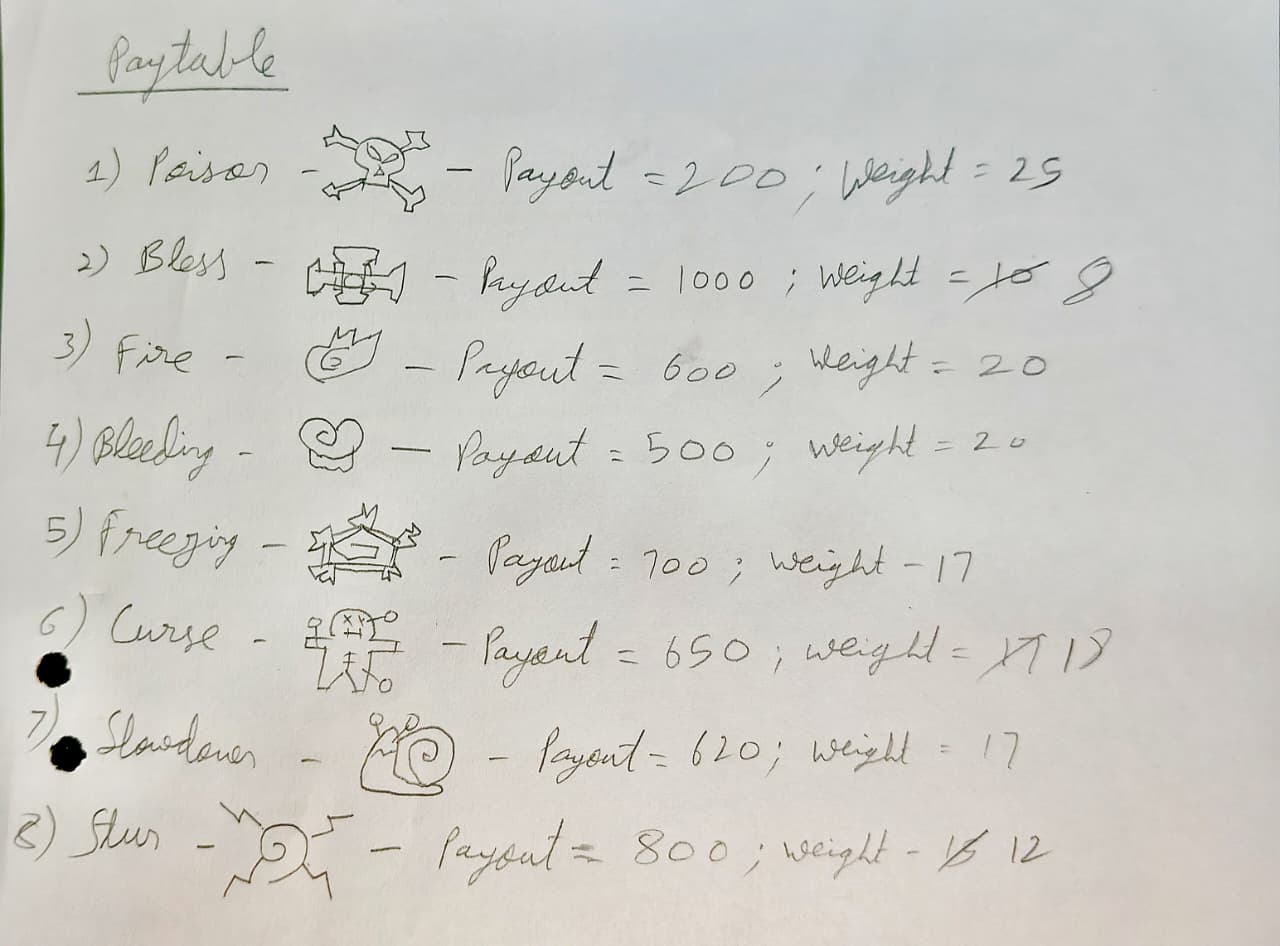 Paytable
1) Poison - - Payout = 200 ; Weight = 25
2) Bless - - Payout = 1000 ; Weight = 10 8
3) Fire - - Payout = 600 ; Weight = 20
4) Bleeding - - Payout = 500 ; Weight = 20
5) Freezing - - Payout = 700 ; Weight - 17
6) Curse - - Payout = 650 ; weight = 18
7) Slowdown - - Payout = 620 ; Weight = 17
8) Stun - - Payout = 800 ; weight - 12